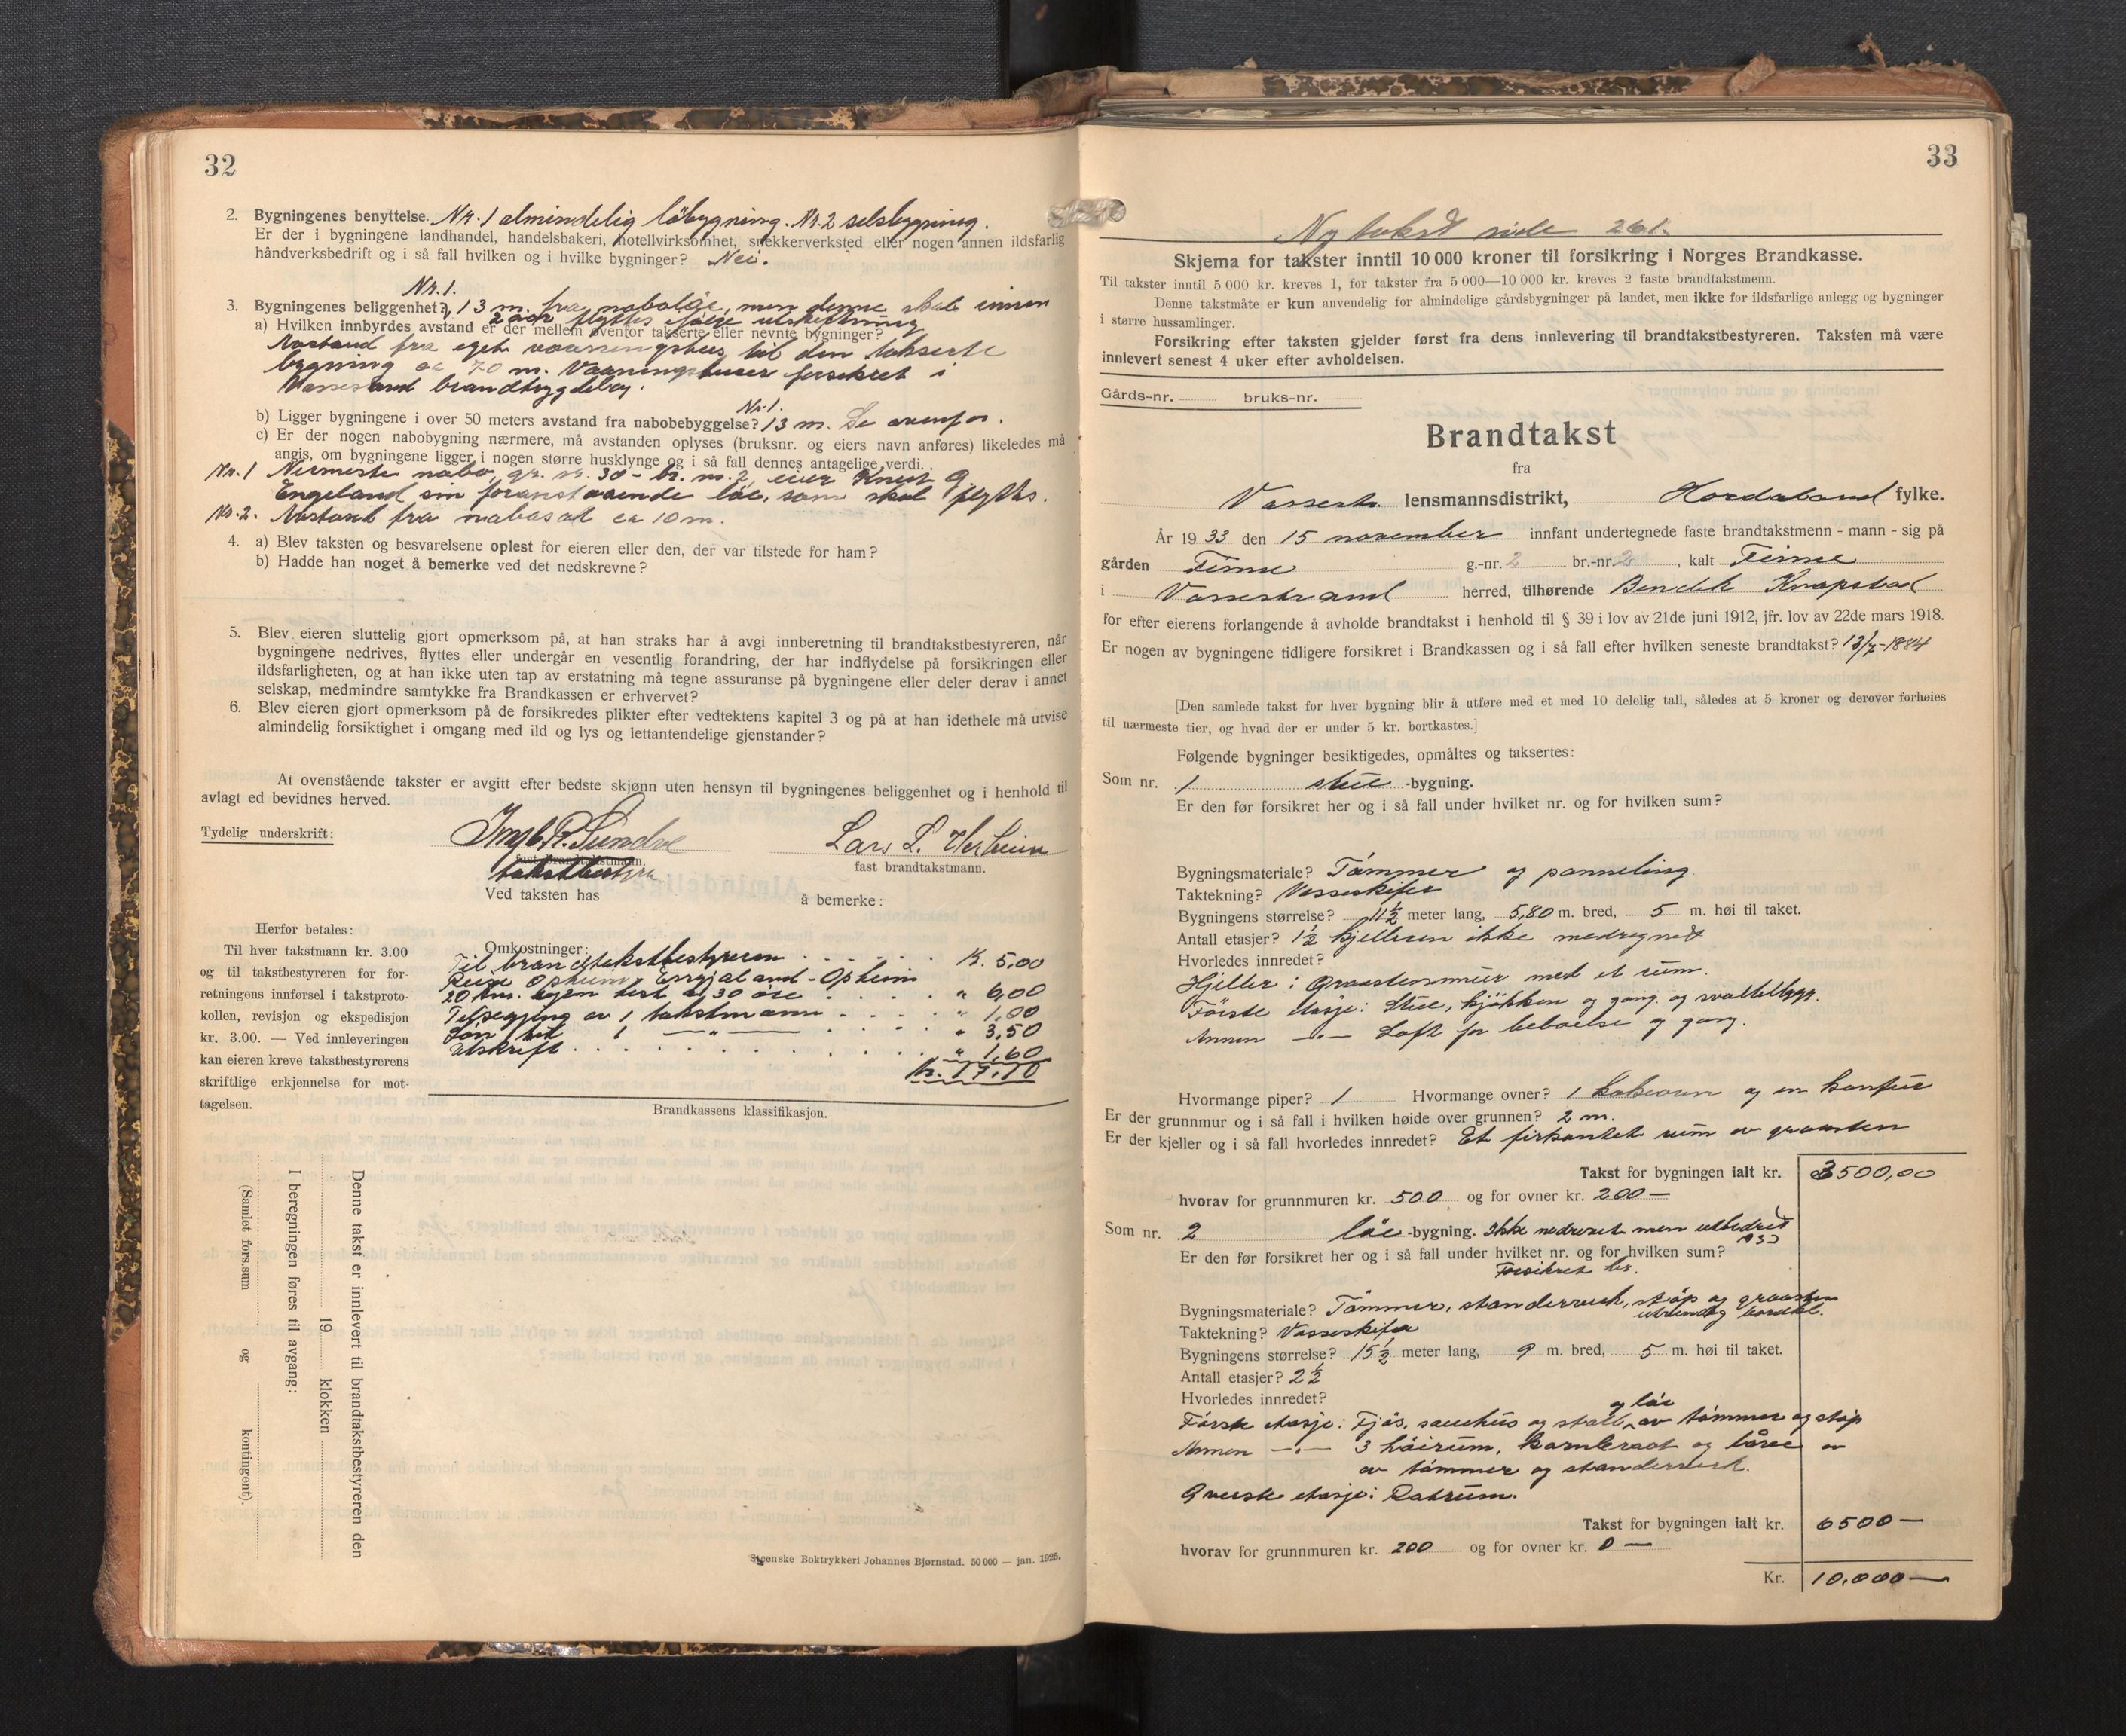 32
2. Bygningenes benyttelse. Nr. 1 almindelig löbygning. Nr. 2 selsbygning.
Er der i bygningene landhandel, handelsbakeri, hotellvirksomhet, snekkerverksted eller nogen annen ildsfarlig
håndverksbedrift og i så fall hvilken og i hvilke bygninger? Nei.
Nr. 1.
3. Bygningenes beliggenhet? 13 m. fra naboløe, men denne skal innen
2 aar flyttes ifølge utskiftning
a) Hvilken innbyrdes avstand er der mellem ovenfor takserte eller nevnte bygninger?
Avstand fra eget vaaningshus til den takserte
bygning ca 70 m. Vaaningshuset forsikret i
Vossestrand brandtrygdelag.
Nr. 1.
b) Ligger bygningene i over 50 meters avstand fra nabobebyggelse? 13 m. Se ovenfor.
c) Er der nogen nabobygning nærmere, må avstanden oplyses (bruksnr. og eiers navn anføres) likeledes må
angis, om bygningene ligger i nogen større husklynge og i så fall dennes antagelige verdi.
Nr. 1 Nermeste nabo, gr. nr. 30 - br. nr. 2, eier Knut
Engeland sin foranstaaende løe, som skal flyttes.
Nr. 2. Avstand fra nabosel ca 10 m.
4. a) Blev taksten og besvarelsene oplest for eieren eller den, der var tilstede for ham?
b) Hadde han noget å bemerke ved det nedskrevne?
5. Blev eieren sluttelig gjort opmerksom på, at han straks har å avgi innberetning til brandtakstbestyreren, når
bygningene nedrives, flyttes eller undergår en vesentlig forandring, der har indflydelse på forsikringen eller
ildsfarligheten, og at han ikke uten tap av erstatning må tegne assuranse på bygningene eller deler derav i annet
selskap, medmindre samtykke fra Brandkassen er erhvervet?
6. Blev eieren gjort opmerksom på de forsikredes plikter efter vedtektens kapitel 3 og på at han idethele må utvise
almindelig forsiktighet i omgang med ild og lys og lettantendelige gjenstander?
At ovenstående takster er avgitt efter bedste skjønn uten hensyn til bygningenes beliggenhet og i henhold til
avlagt ed bevidnes herved.
Tydelig underskrift: Ingb. R. Sundve Lars L. Herheim
fast brandtakstmann. fast brandtakstmann.
takstbestyrer
Ved taksten has å bemerke:
Herfor betales:
Til hver takstmann kr. 3.00
og til takstbestyreren for for-
retningens innførsel i takstproto-
kollen, revisjon og ekspedisjon
kr. 3.00. — Ved innleveringen
kan eieren kreve takstbestyrerens
skriftlige erkjennelse for mot-
tagelsen.
Omkostninger:
Til brandtakstbestyreren . . . . . . K. 5,00
Reise Opheim, Engjaland - Opheim
20 km. egen hest à 30 öre . . . . " 6,00
Tilsegjing av 1 takstmann . . . . " 1,00
Løn til 1 —"— . . . . " 3,50
Utskrift . . . . . . . . " 1,60
Kr. 17,10
Brandkassens klassifikasjon.
Denne takst er innlevert til brandtakstbestyreren den
19 klokken
I beregningen føres til avgang:
(Samlet fors.sum og kontingent).
Steenske Boktrykkeri Johannes Bjørnstad. 50 000 — jan. 1925.
33
Ny takst side 261.
Skjema for takster inntil 10 000 kroner til forsikring i Norges Brandkasse.
Til takster inntil 5 000 kr. kreves 1, for takster fra 5 000—10 000 kr. kreves 2 faste brandtakstmenn.
Denne takstmåte er kun anvendelig for almindelige gårdsbygninger på landet, men ikke for ildsfarlige anlegg og bygninger
i større hussamlinger.
Forsikring efter taksten gjelder først fra dens innlevering til brandtakstbestyreren. Taksten må være
innlevert senest 4 uker efter avholdelsen.
Gårds-nr. bruks-nr.
Brandtakst
fra
Vossestr. lensmannsdistrikt, Hordaland fylke.
År 1933 den 15 november innfant undertegnede faste brandtakstmenn - mann - sig på
gården Finne g.-nr. 2 br.-nr. 2, kalt Finne
i Vossestrand herred, tilhørende Bendik Knapstad
for efter eierens forlangende å avholde brandtakst i henhold til § 39 i lov av 21de juni 1912, jfr. lov av 22de mars 1918.
Er nogen av bygningene tidligere forsikret i Brandkassen og i så fall efter hvilken seneste brandtakst? 13/7-1884
[Den samlede takst for hver bygning blir å utføre med et med 10 delelig tall, således at 5 kroner og derover forhøies
til nærmeste tier, og hvad der er under 5 kr. bortkastes.]
Følgende bygninger besiktigedes, opmåltes og taksertes:
Som nr. 1 stue -bygning.
Er den før forsikret her og i så fall under hvilket nr. og for hvilken sum?
Bygningsmateriale? Tømmer og panneling.
Taktekning? Vosseskifer
Bygningens størrelse? 11½ meter lang, 5,80 m. bred, 5 m. høi til taket.
Antall etasjer? 1½ kjelleren ikke medregnet
Hvorledes innredet?
Kjeller: Graastensmur med et rum.
Förste etasje: Stue, kjøkken og gang, og svalltilbygg.
Annen —"— Loft for beboelse og gang.
Hvormange piper? 1 Hvormange ovner? 1 kokeovn og en komfur
Er der grunnmur og i så fall i hvilken høide over grunnen? 2 m.
Er der kjeller og i så fall hvorledes innredet? Et firkantet rum av graasten
Takst for bygningen ialt kr. 3500,00
hvorav for grunnmuren kr. 500 og for ovner kr. 200—
Som nr. 2 löe -bygning. Ikke nedrevet men utbedret
Er den før forsikret her og i så fall under hvilket nr. og for hvilken sum?
Forsikret her.
Bygningsmateriale? Tömmer, standerverk, støp og graasten
utvendig bordkl.
Taktekning? Vosseskifer
Bygningens størrelse? 15½ meter lang, 9 m. bred, 5 m. høi til taket.
Antall etasjer? 2½
Hvorledes innredet?
og löe
Förste etasje: Fjøs, sauehus og stall, av tömmer og støp
Annen —"— 3 höirum, kornbraot og låve av
av tömmer og standerverk.
Øverste etasje: Ratrum.
Takst for bygningen ialt kr. 6500—
hvorav for grunnmuren kr. 200 og for ovner kr. 0—
Kr. 10,000—